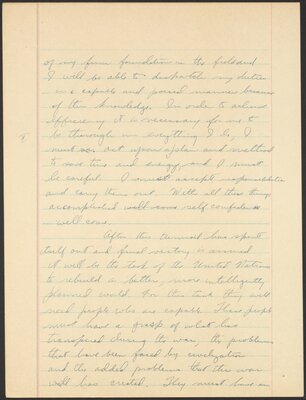 of my firm foundation in the field and
I will be able to dispatch my duties
in a capable and poised manner because
of this knowledge. In order to achieve
efficiency it is necessary for me to
be thorough in everything I do, I
must act upon a plan and method
to save time and energy, and I must
be careful. I must accept responsibilities
and carry them out. With all these things
accomplished will come self confidence
will come.
After this turmoil has spent
itself out and final victory is assured
it will be the task of the United Nations
to rebuild a better, more intelligently
planned world. For this task they will
need people who are capable. These people
must have a grasp of what has
transpired during the war, the problems
that have been faced by civilization
and the added problems that the war
will has created. They must have an